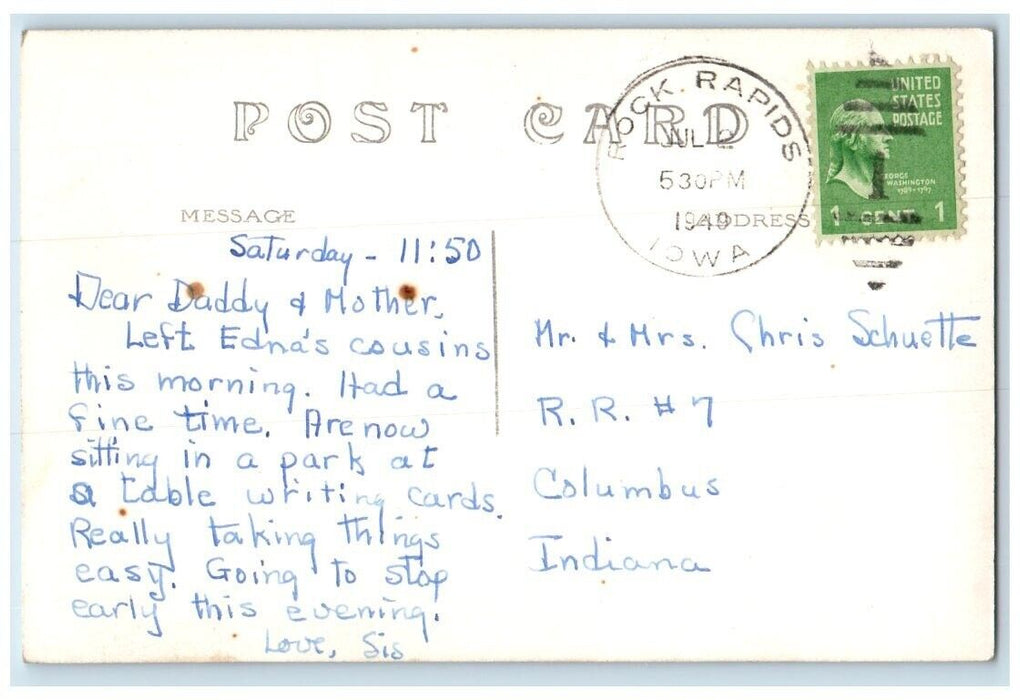 POST CARD
ROCK RAPIDS
JUL 2
530PM
1949
IOWA
UNITED
STATES
POSTAGE
GEORGE
WASHINGTON
1789-1797
1 CENT 1
MESSAGE
ADDRESS
Saturday - 11:50
Dear Daddy & Mother,
Left Edna's cousins
this morning. Had a
fine time. Are now
sitting in a park at
a table writing cards.
Really taking things
easy. Going to stop
early this evening.
Love, Sis
Mr. & Mrs. Chris Schuette
R. R. # 7
Columbus
Indiana